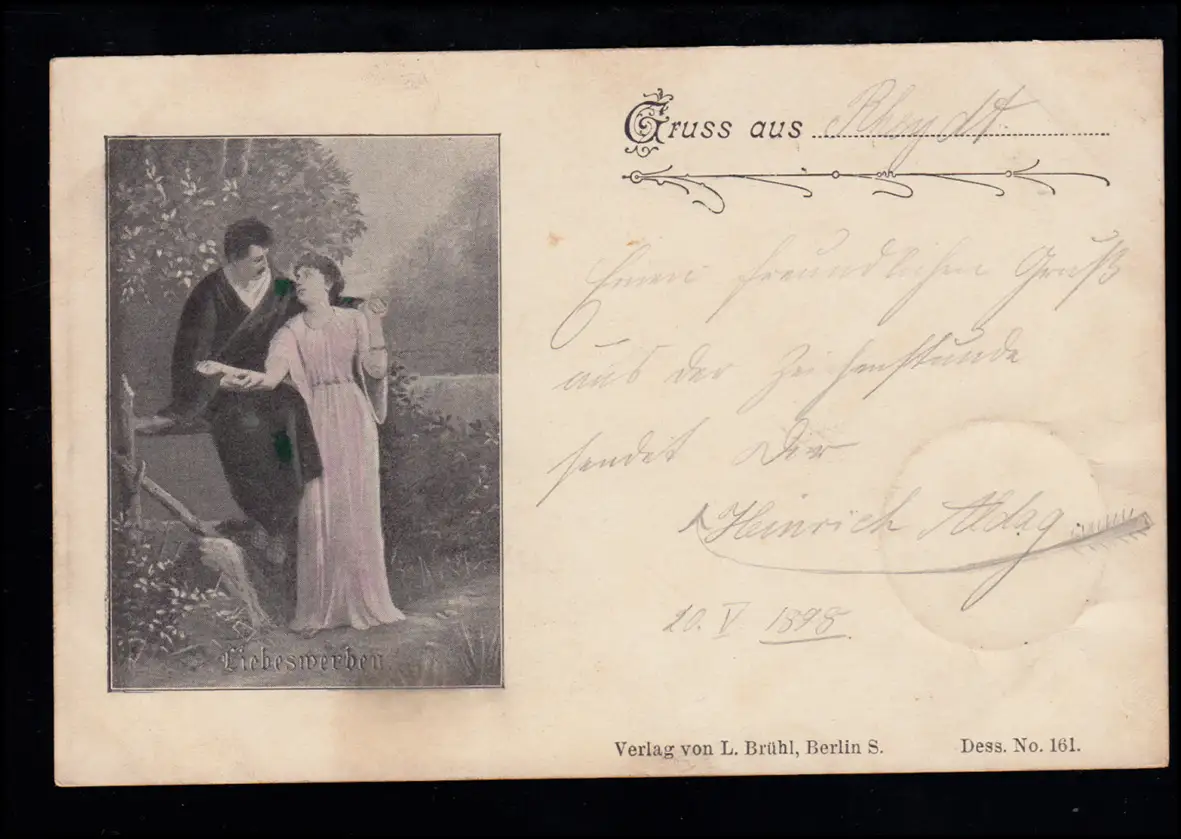 Gruss aus Rheydt
Einen freundlichen Gruß
aus der Zeichenstunde
sendet Dir
Heinrich Aldag.
20. V 1898.
Liebeswerben
Verlag von L. Brühl, Berlin S. Dess. No. 161.